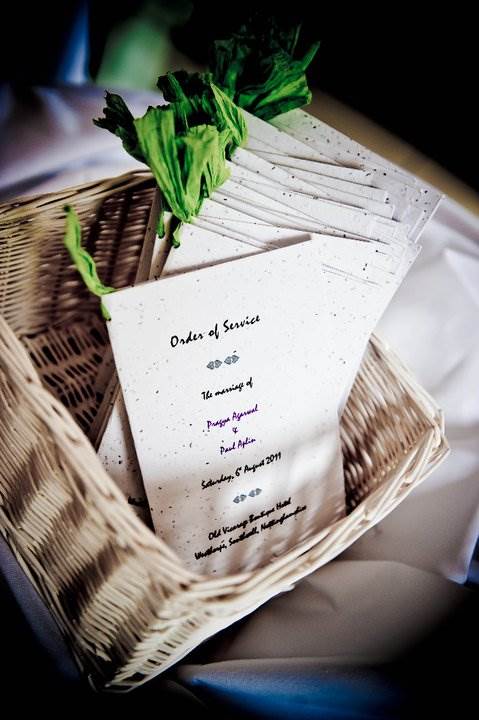 Order of Service
The marriage of
Pragya Agarwal
&
Paul Aplin
Saturday, 6th August 2011
Old Vicarage Boutique Hotel
Westhorpe, Southwell, Nottinghamshire